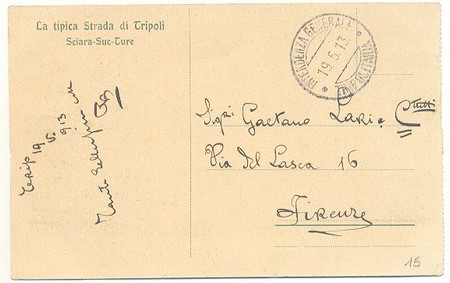 La tipica Strada di Tripoli
Sciara-Suc-Ture
INTENDENZA GENERALE
19.5.13
TRIPOLITANIA
Tripoli 19
V.
913
Tanti
Sigri Gaetano Lari e C
tutti
Via del Lasca 16
Firenze
15